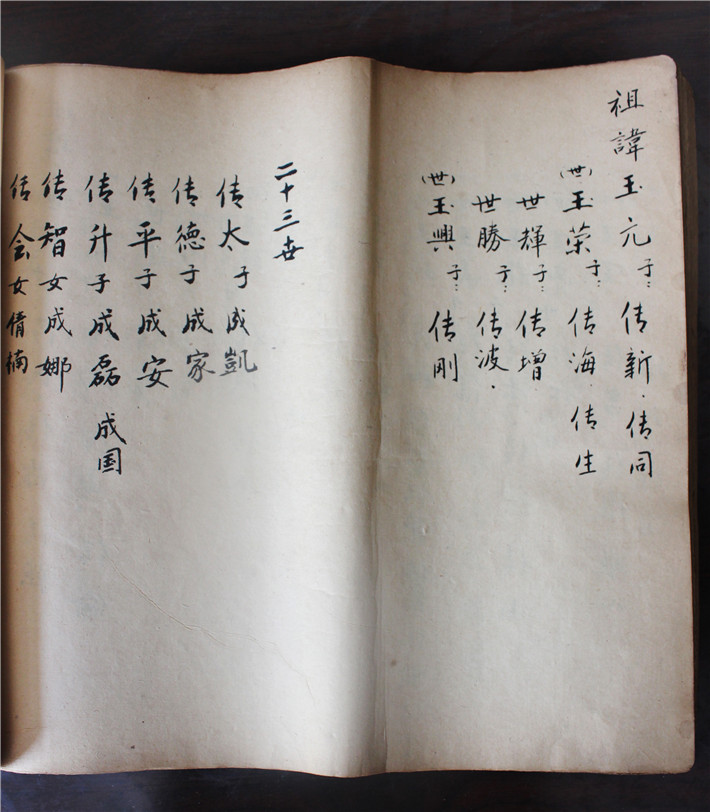 祖諱玉元子:传新.传同
(世)玉荣子:传海.传生
世輝子:传增.
世勝子:传波.
(世)玉興子:传刚
二十三世
传太子成凱
传德子成家
传平子成安
传升子成磊 成国
传智女成娜
传会女倩楠